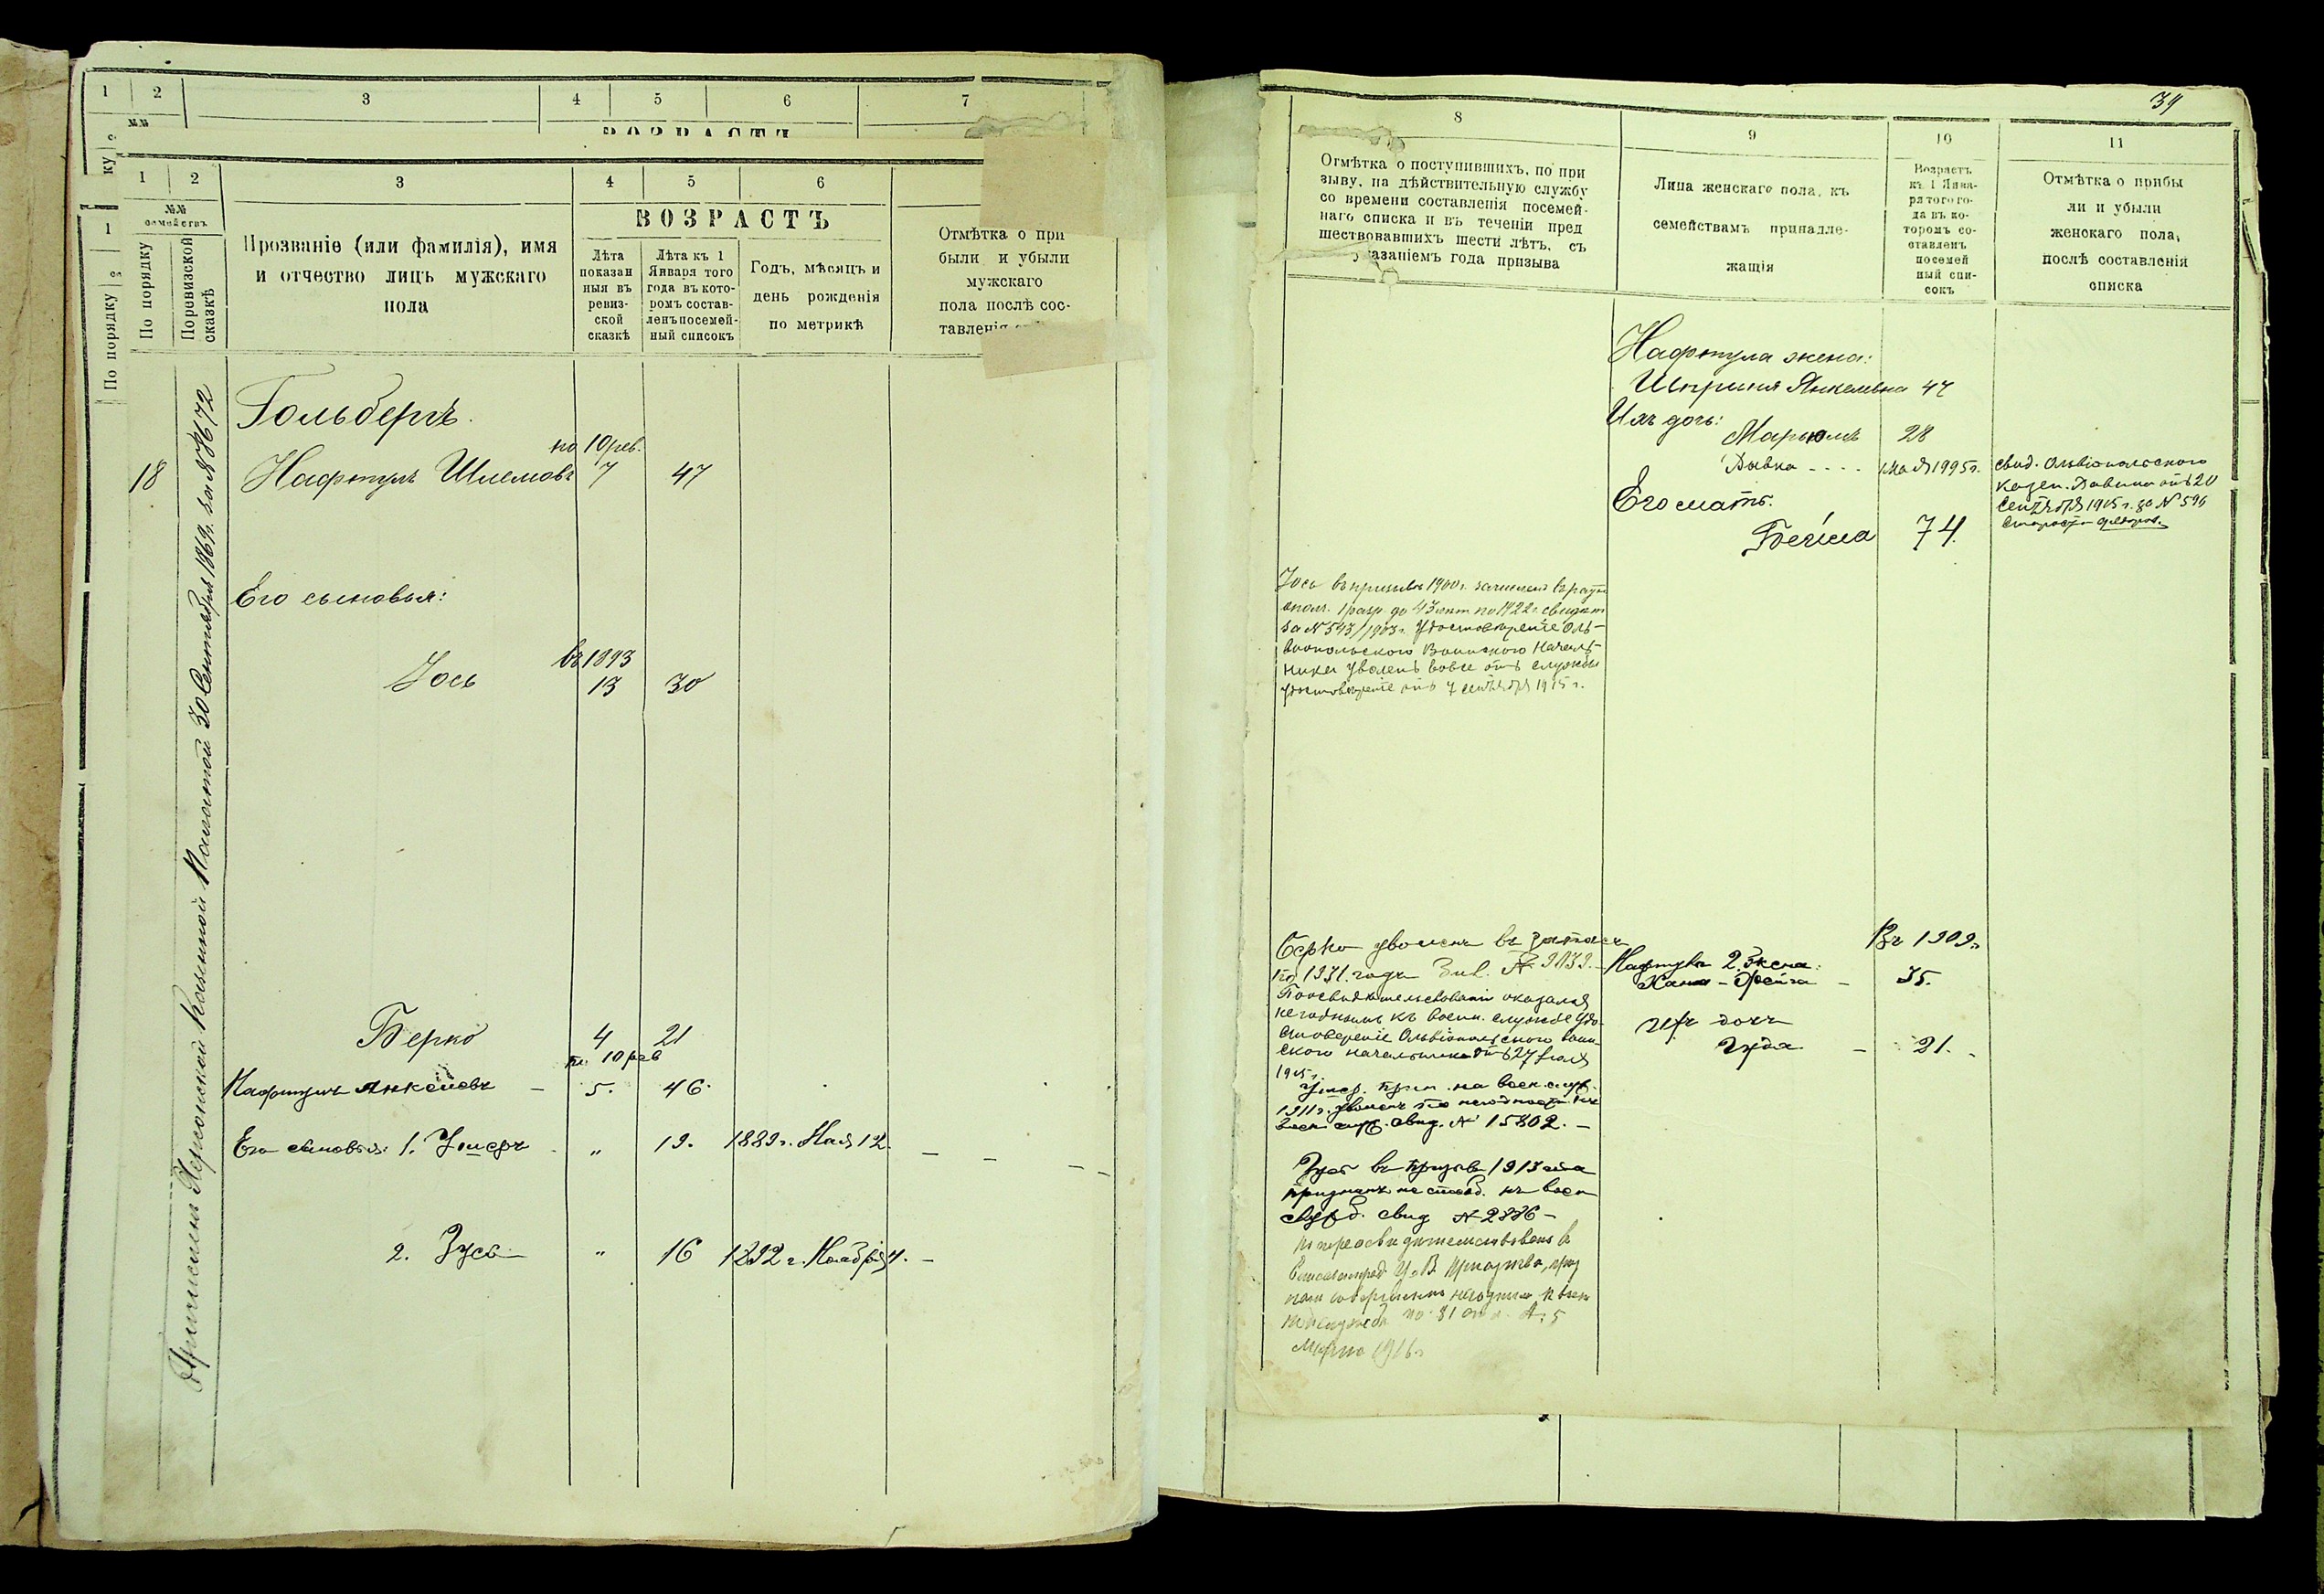 1 2 3 4 5 6 7
№№
ВОЗРАСТЪ
ку
1
По порядку
1 2 3 4 5 6
№№
семействъ
По порядку
По ревизской
сказкѣ
Прозваніе (или фамилія), имя
и отчество лицъ мужскаго
пола
ВОЗРАСТЪ
Лѣта
показан
ныя въ
ревиз-
ской
сказкѣ
Лѣта къ 1
Января того
года въ кото-
ромъ состав-
ленъ посемей-
ный списокъ
Годъ, мѣсяцъ и
день рожденія
по метрикѣ
Отмѣтка о при
были и убыли
мужскаго
пола послѣ сос-
тавленія
Приписаны Херсонской Казенной Палатой 30 Сентября 1869г. за № 8672
Гольбергъ.
по 10 рев.
18 Нафтулъ Шлемовъ 7 47
Его сыновья:
въ 1893
Іось 13 30
Берко 4 21
по 10 рев
Нафтулъ Янкелевъ — 5. 46.
Его сыновья: 1. Ушеръ " 19. 1889 г. Мая 12. —
2. Зусь " 16 1892 г. Ноября 4. —
39
8 9 10 11
Отмѣтка о поступившихъ, по при
зыву, на дѣйствительную службу
со времени составленія посемей-
наго списка и въ теченіи пред
шествовавшихъ шести лѣтъ, съ
указаніемъ года призыва
Лица женскаго пола, къ
семействамъ принадле-
жащія
Возрастъ
къ 1 Янва-
ря того го-
да въ ко-
торомъ со-
ставленъ
посемей
ный спи-
сокъ
Отмѣтка о прибы
ли и убыли
женскаго пола,
послѣ составленія
списка
Нафтула жена:
Шприня Янкелевна 47
Ихъ дочь:
Марьямъ 28
Рывка - - - - Мая 1995 г.
Его мать.
Бейла 74.
свид. Ольвіопольского
Казен. Равина отъ 20
Сентября 1915 г. за № 596
Староста
Іось въ призывъ 1900 г. зачисленъ въ ратн
ополч. 1 разр. до 43 лѣт по 1922 г. свидѣт
за № 543/1903 г. Удостовѣреніе Оль-
віопольского Воинского Началь-
ника Уволенъ вовсе отъ службы
Удостовѣреніе отъ 7 сентября 1915 г.
Берко уволенъ въ запасъ
по 1931. годъ № 9039.
По освидѣтельствованіи оказался
негоднымъ къ воен. службе Удо-
стоверение Ольвіопольского воин-
ского начальника отъ 27 Іюля
1915 г.
Ушер. прин. на воен. служ.
1911 г. уволенъ по негодности къ
воен. служ. свид. № 15802. —
Зусь въ призывъ 1913 года
признанъ не способ. къ воен
служб. свид № 2886 —
по переосвидетельствованию в
признан
совершенно негодным к воен
ной службе по 81 № 5
Марта 1916 г.
Въ 1909 г.
Нафтула 2. Жена:
Хана - Фейга — 35.
Ихъ дочь
Гуда — 21. -